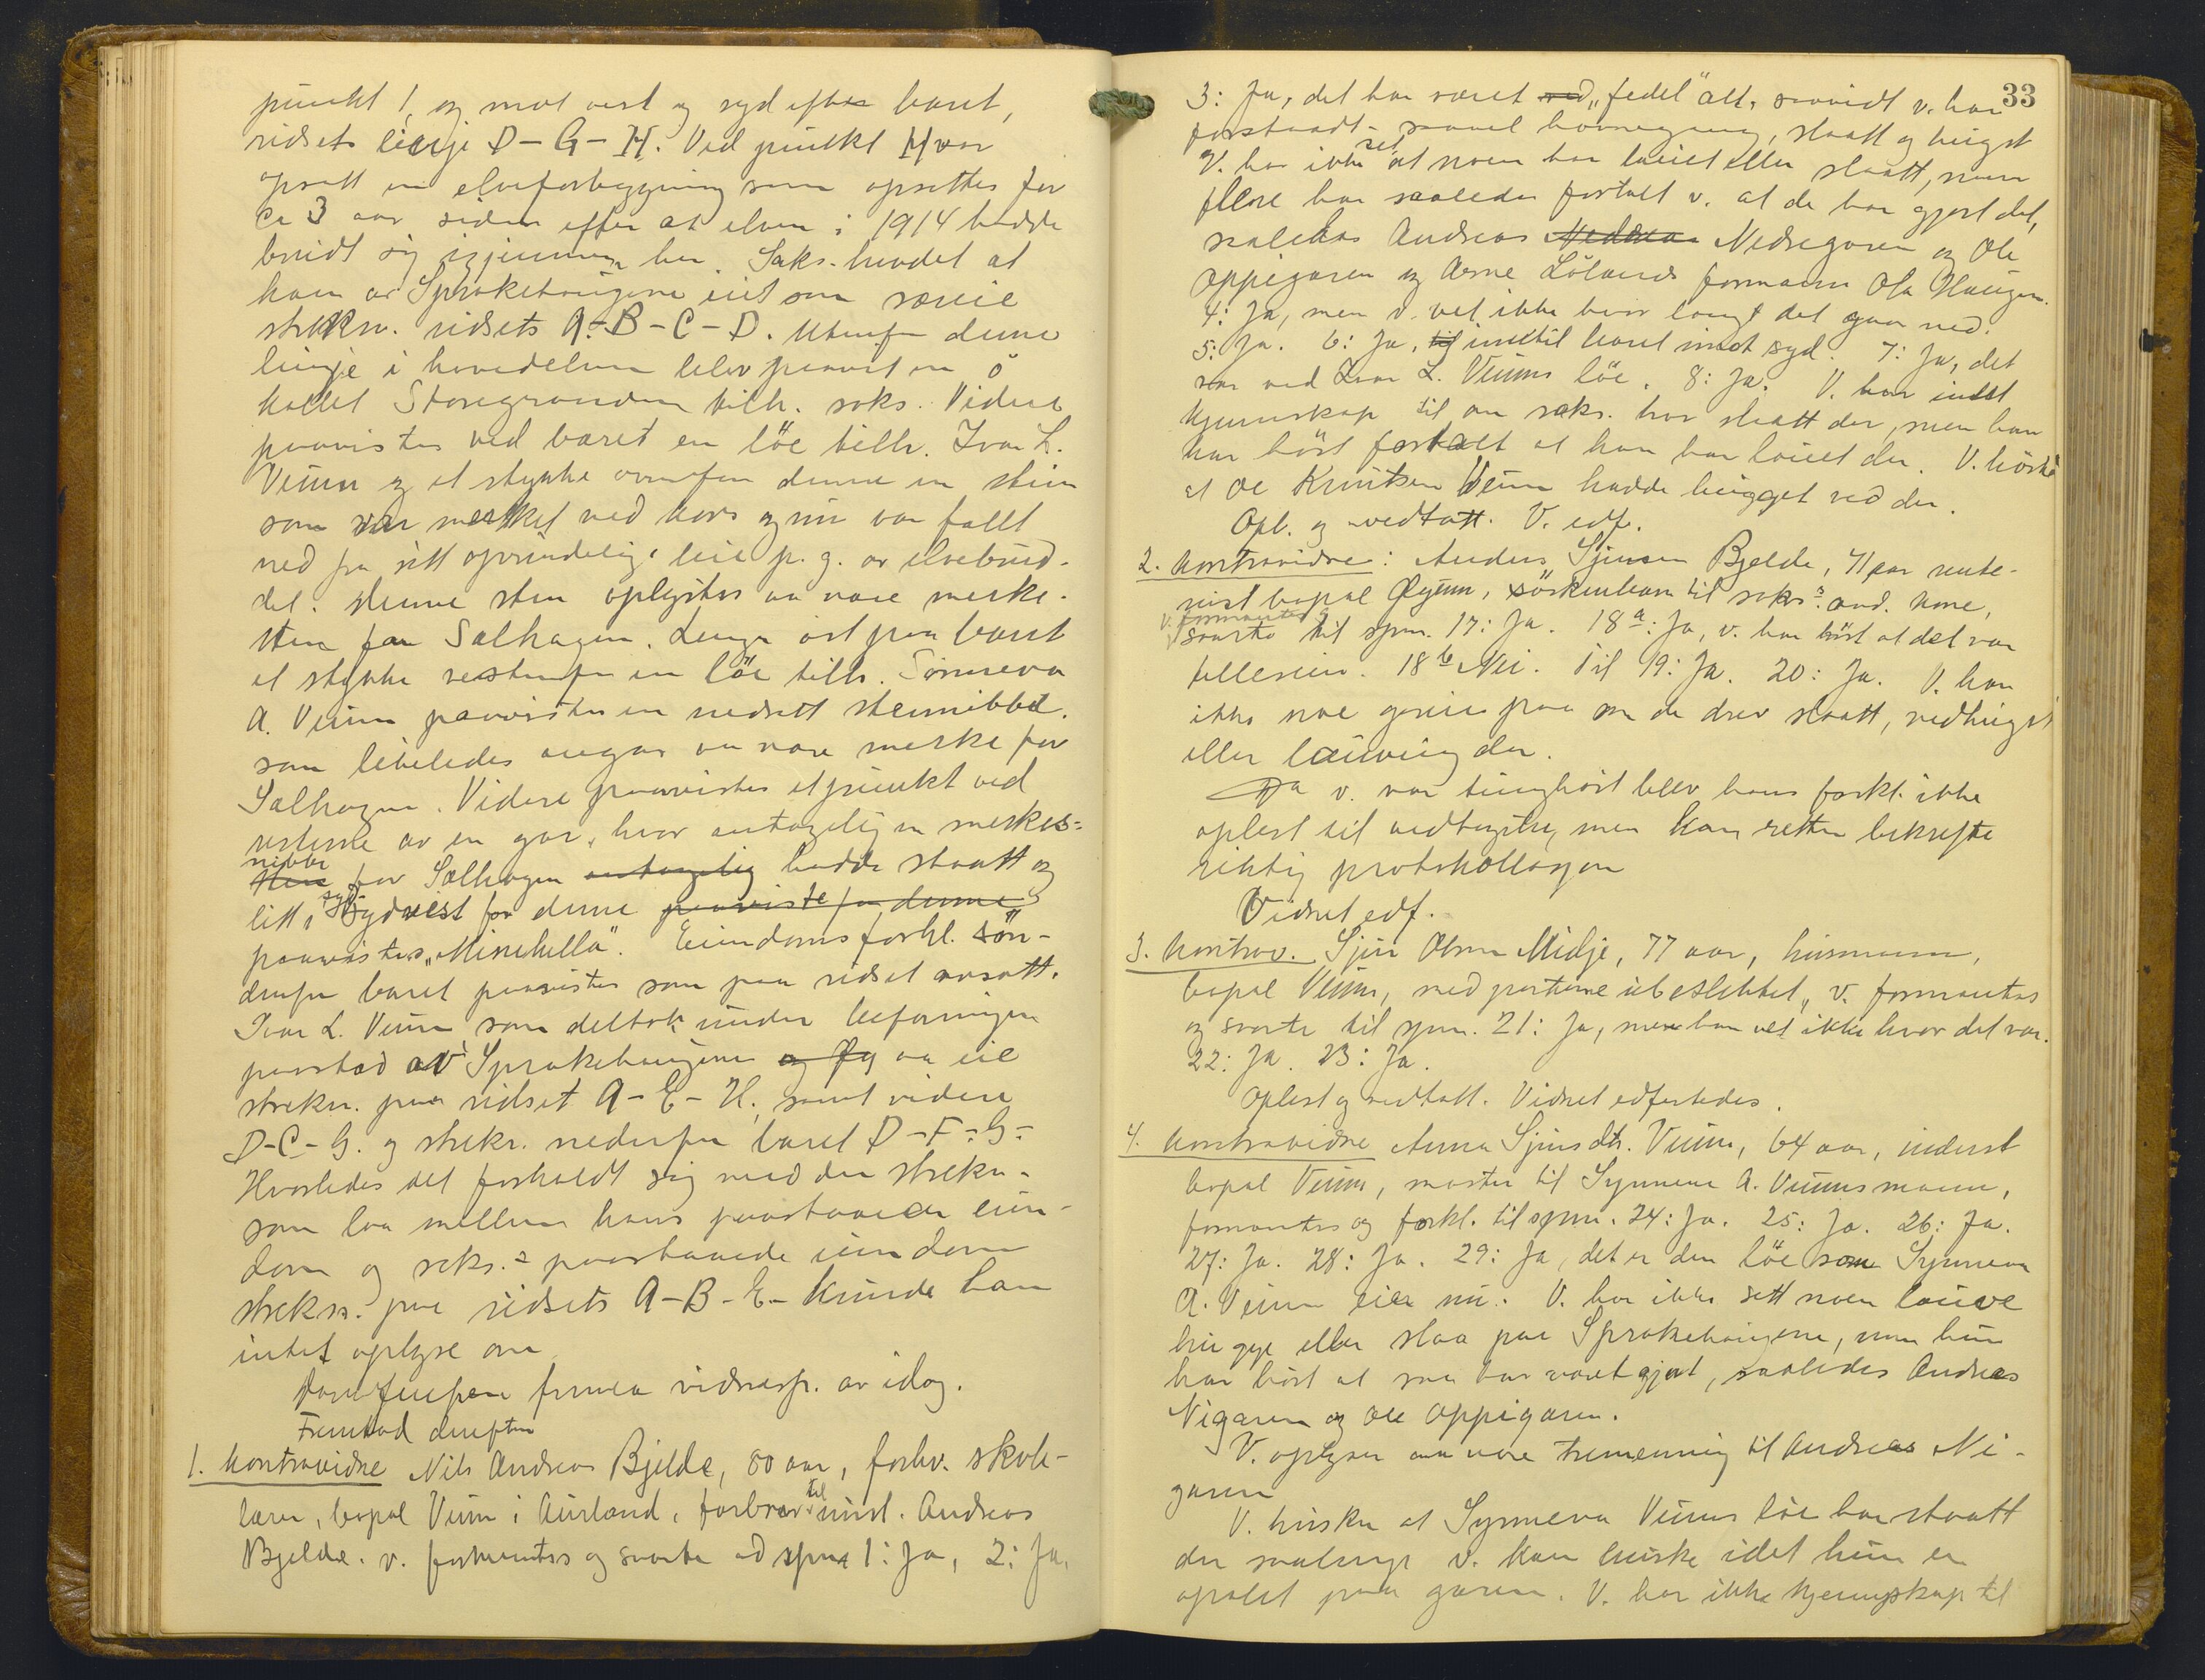 punkt 1, og mot vest og syd efter baret,
ridsets linje D-G-H. Ved punkt H var
opsatt en elveforbygning som opsettes for
ca 3 aar siden efter at elven i 1914 hadde
brudt sig igjennem her. Saks. hevdet at
han av Sprakehaugene eiet som sameie
strekn. ridsets A-B-C-D. Utenfor denne
linje i hovedelven blev paavist en ö
kallet Storegranden tilh. saks. Videre
paavistes ved baret en löe tilh. Ivar L.
Veum og et stykke ovenfor denne en stein
som var merket med kors og nu var fallt
ned fra sitt oprindelige leie p. g. av elvebrud-
det. Denne sten oplystes aa vare merke-
sten for Sælhagen. Lenger öst paa baret
et stykke vestenfor en löe tilh. Sönneva
A. Veum paavistes en nedsatt stennibbe
som likeledes angas aa vare merke for
Sælhagen. Videre paavistes et punkt ved
resterne av en gar, hvor antagelig en merkes-
nibbe for Sælhagen antagelig hadde staatt og
litt i sydvest for denne paaviste for denne
paavistes "Minehella". Eiendomsforhl. sön-
denfor baret paavistes som paa ridset avsatt.
Ivar L. Veum som deltok under befaringen
paastod av Sprakehaugene og Øy aa eie
strekn. paa ridset A-E-H. samt videre
D-C-G. og strekn. nedenfor baret D-F-G-
Hvorledes det forholdt sig med den strekn.
som laa mellem hans paastaaede eien-
dom og saks.s paastaaede eiendom
strekn. paa ridsets A-B-E- kunde han
intet oplyse om.
Derefter
Fremstod derefter
1. kontravidne Nils Andreas Bjelde, 80 aar, forhv. skole-
lærer, bopal Veum i Aurland, farbror til mist. Andreas
Bjelde. v. formantes og svarte ad spm 1: Ja, 2: Ja.
33
3: Ja, det har været ved "fedel" alt, saavidt v. har
forstaadt - saavel havnegang, slaatt og hugst
V. har ikke set at noen har lauvet eller slaatt, men
flere har saaledes fortalt v. at de har gjort det,
saaledes Andreas Neddrea Nedregaren og Ole
Oppigaren og Arne Lölands formann Ola Haugen.
4: Ja, men v. vet ikke hvor langt det gaar ned.
5: Ja. 6: Ja, til inntil baret imot syd. 7: Ja, det
var ved Ivar L. Veums löe. 8: Ja. V. har intet
kjennskap til om saks. har slaatt der, men han
har hört fortalt at han har lauvet der. V. hörte
at Ole Knutsen Veum hadde hugget ved der.
Opl. og vedtatt. V. edf.
2. kontravidne: Anders Sjursen Bjelde, 71 aar rente-
nist bopal Øygum, söskenbarn til saks.s avd. kone,
v. formantes og
svarte til spm. 17: Ja. 18a: Ja, v. har hört at det var
felleseie. 18b Nei. Til 19: Ja. 20: Ja. V. har
ikke noe greie paa om de drev slaatt, vedhugst
eller lauving der.
Da v. var tunghört blev hans forkl. ikke
oplest til vedtagelse, men kan retten bekrefte
riktig protokollasjon
Vidnet edf.
3. kontrav. Sjur Olsen Midje, 77 aar, husmann,
bopal Veum, med parterne ubeslektet, v. formantes
og svarte til spm. 21: Ja, men han vet ikke hvor det var.
22: Ja. 23: Ja.
Oplest og vedtatt. Vidnet edfestedes.
4. kontravidne Anna Sjursdtr. Veum, 64 aar, inderst
bopal Veum, moster til Synneva A. Veums mann,
formantes og forkl. til spm. 24: Ja. 25: Ja. 26: Ja.
27: Ja. 28: Ja. 29: Ja, det er den löe som Synneva
A. Veum eier nu. V. har ikke sett noen lauve
hugge eller slaa paa Sprakehaugene, men hun
har hört at saa har varet gjort, saaledes Andreas
Nigaren og Ole Oppigaren.
V. oplyser aa vare tremenning til Andreas Ni-
garen
V. husker at Synneva Veums löe har staatt
der saalenge v. kan huske idet hun er
opalet paa garen. V. har ikke kjennskap til